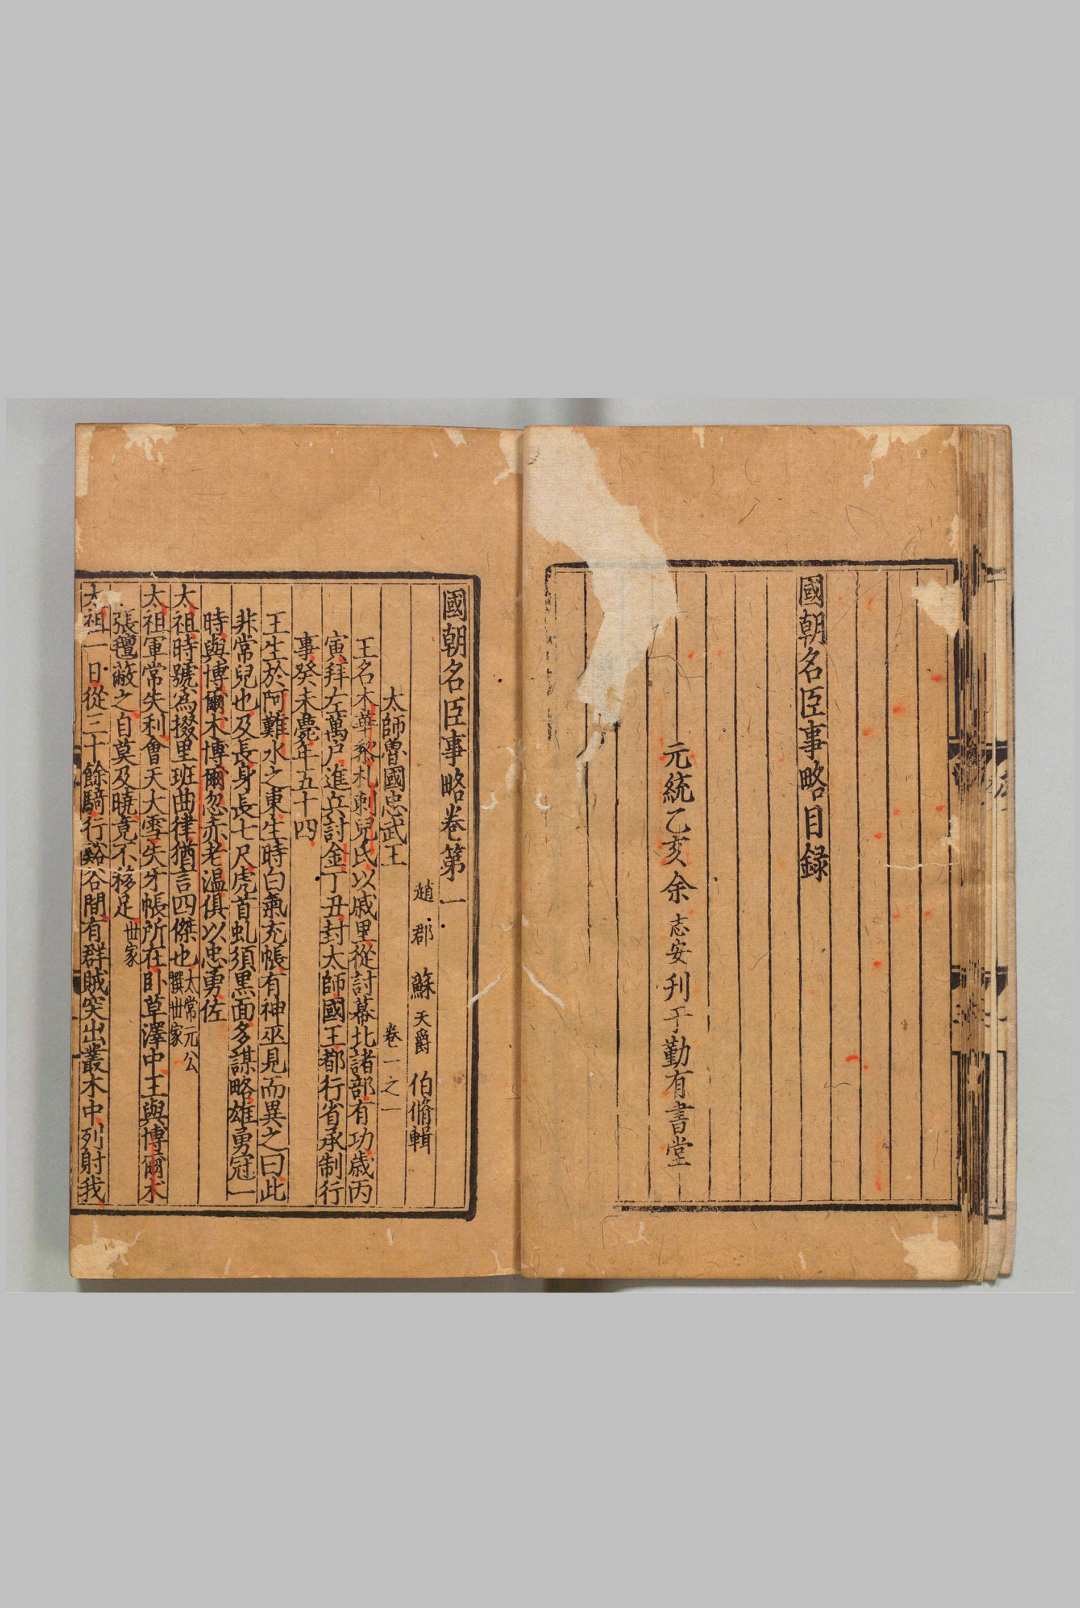 國朝名臣事略目録
元統乙亥余志安刊于勤有書堂
國朝名臣事略卷第一
趙郡蘇天爵伯脩輯
太師魯國忠武王
卷一之一
王名木華黎札剌兒氏以戚里從討幕北諸部有功歳丙
寅拜左萬户進兵討金丁丑封太師國王都行省承制行
事癸未薨年五十四
王生於阿難水之東生時白氣充帳有神巫見而異之曰此
非常兒也及長身長七尺虎首虬須黒面多謀略雄勇冠一
時與博爾木博爾忽赤老温俱以忠勇佐
太祖時號為掇里班曲律猶言四傑也太常元公撰世家
太祖軍常失利會天大雪失牙帳所在卧草澤中王與博爾木
張氊蔽之自莫及曉竟不移足世家
太祖一日從三十餘騎行谿谷間有群賊突出叢木中列射我